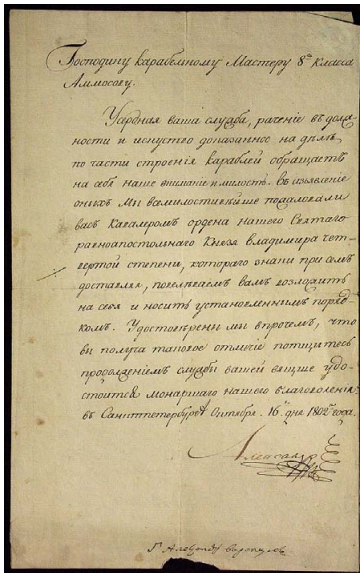 Господину карабельному Мастеру 8го Класса
Аммосову.
Усердная ваша служба, рачение въ долж
ности и искуство доказанное на дѣлѣ,
по части строенія караблей обращаетъ
на себя наше вниманіе и милость. Въ изъявленіе
оныхъ Мы всемилостивейше пожаловали
васъ Кавалеромъ ордена нашего Святаго
равноапостольнаго Князя Владимира чет-
вертой степени, котораго знаки при семъ
доставляя, повелѣваемъ вамъ возложить
на себя и носить установленнымъ поряд-
комъ. Удостовѣрены мы впрочемъ, что
вы получа таковое отличіе потщитесь
продолженіемъ службы вашей вящше удо-
стоится монаршаго нашего благоволенія.
въ Санктпетербургѣ Октября 16. дня 1802 года.
Александръ
Г. Александръ Воронцовъ